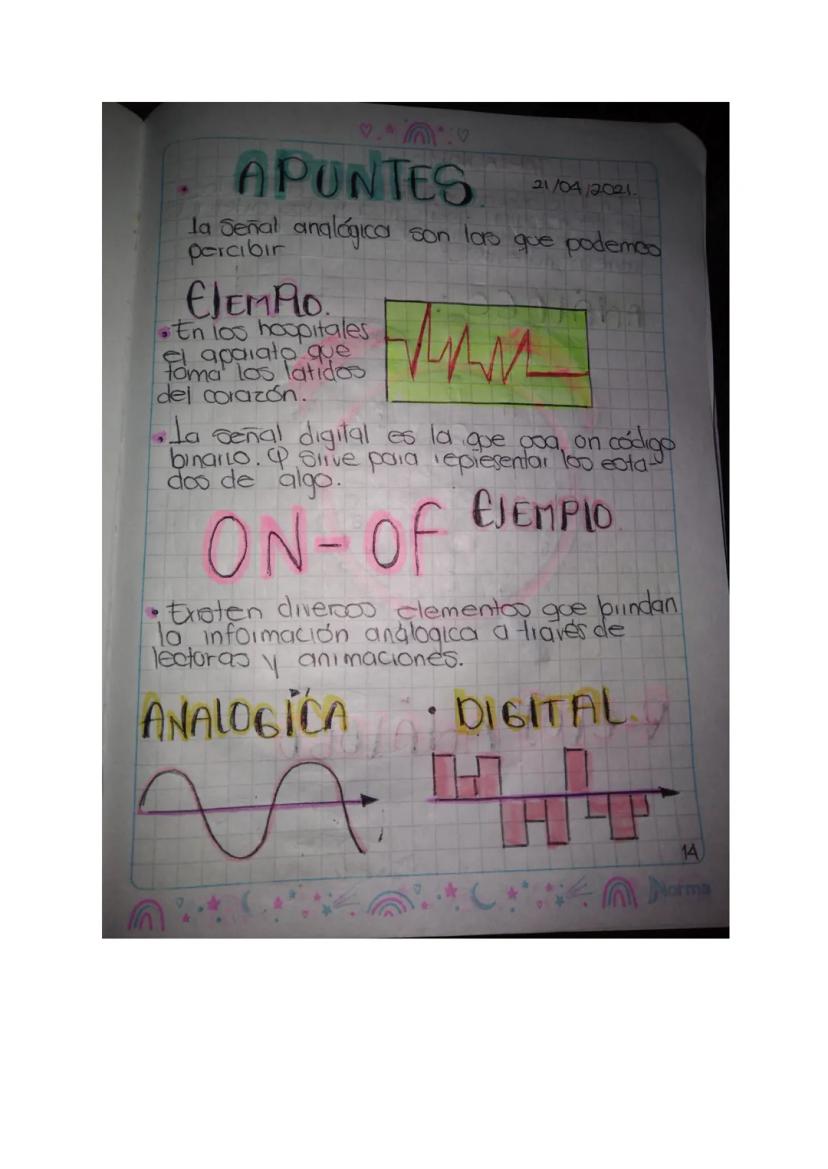 APUNTES.
21/04/2021.
la señal analógica son las que podemos
percibir
EJEMPlO.
• En los hospitales
el aparato que
toma los latidos
del corazón.
• La señal digital es la que usa, on código
binario. y sirve para representar los esta-
dos de algo.
ON-OF EJEMPlO
• Existen diversos elementos que brindan
la información análogica a través de
lectoras y animaciones.
ANALOGÍCA • DIGITAL.
14
Norma